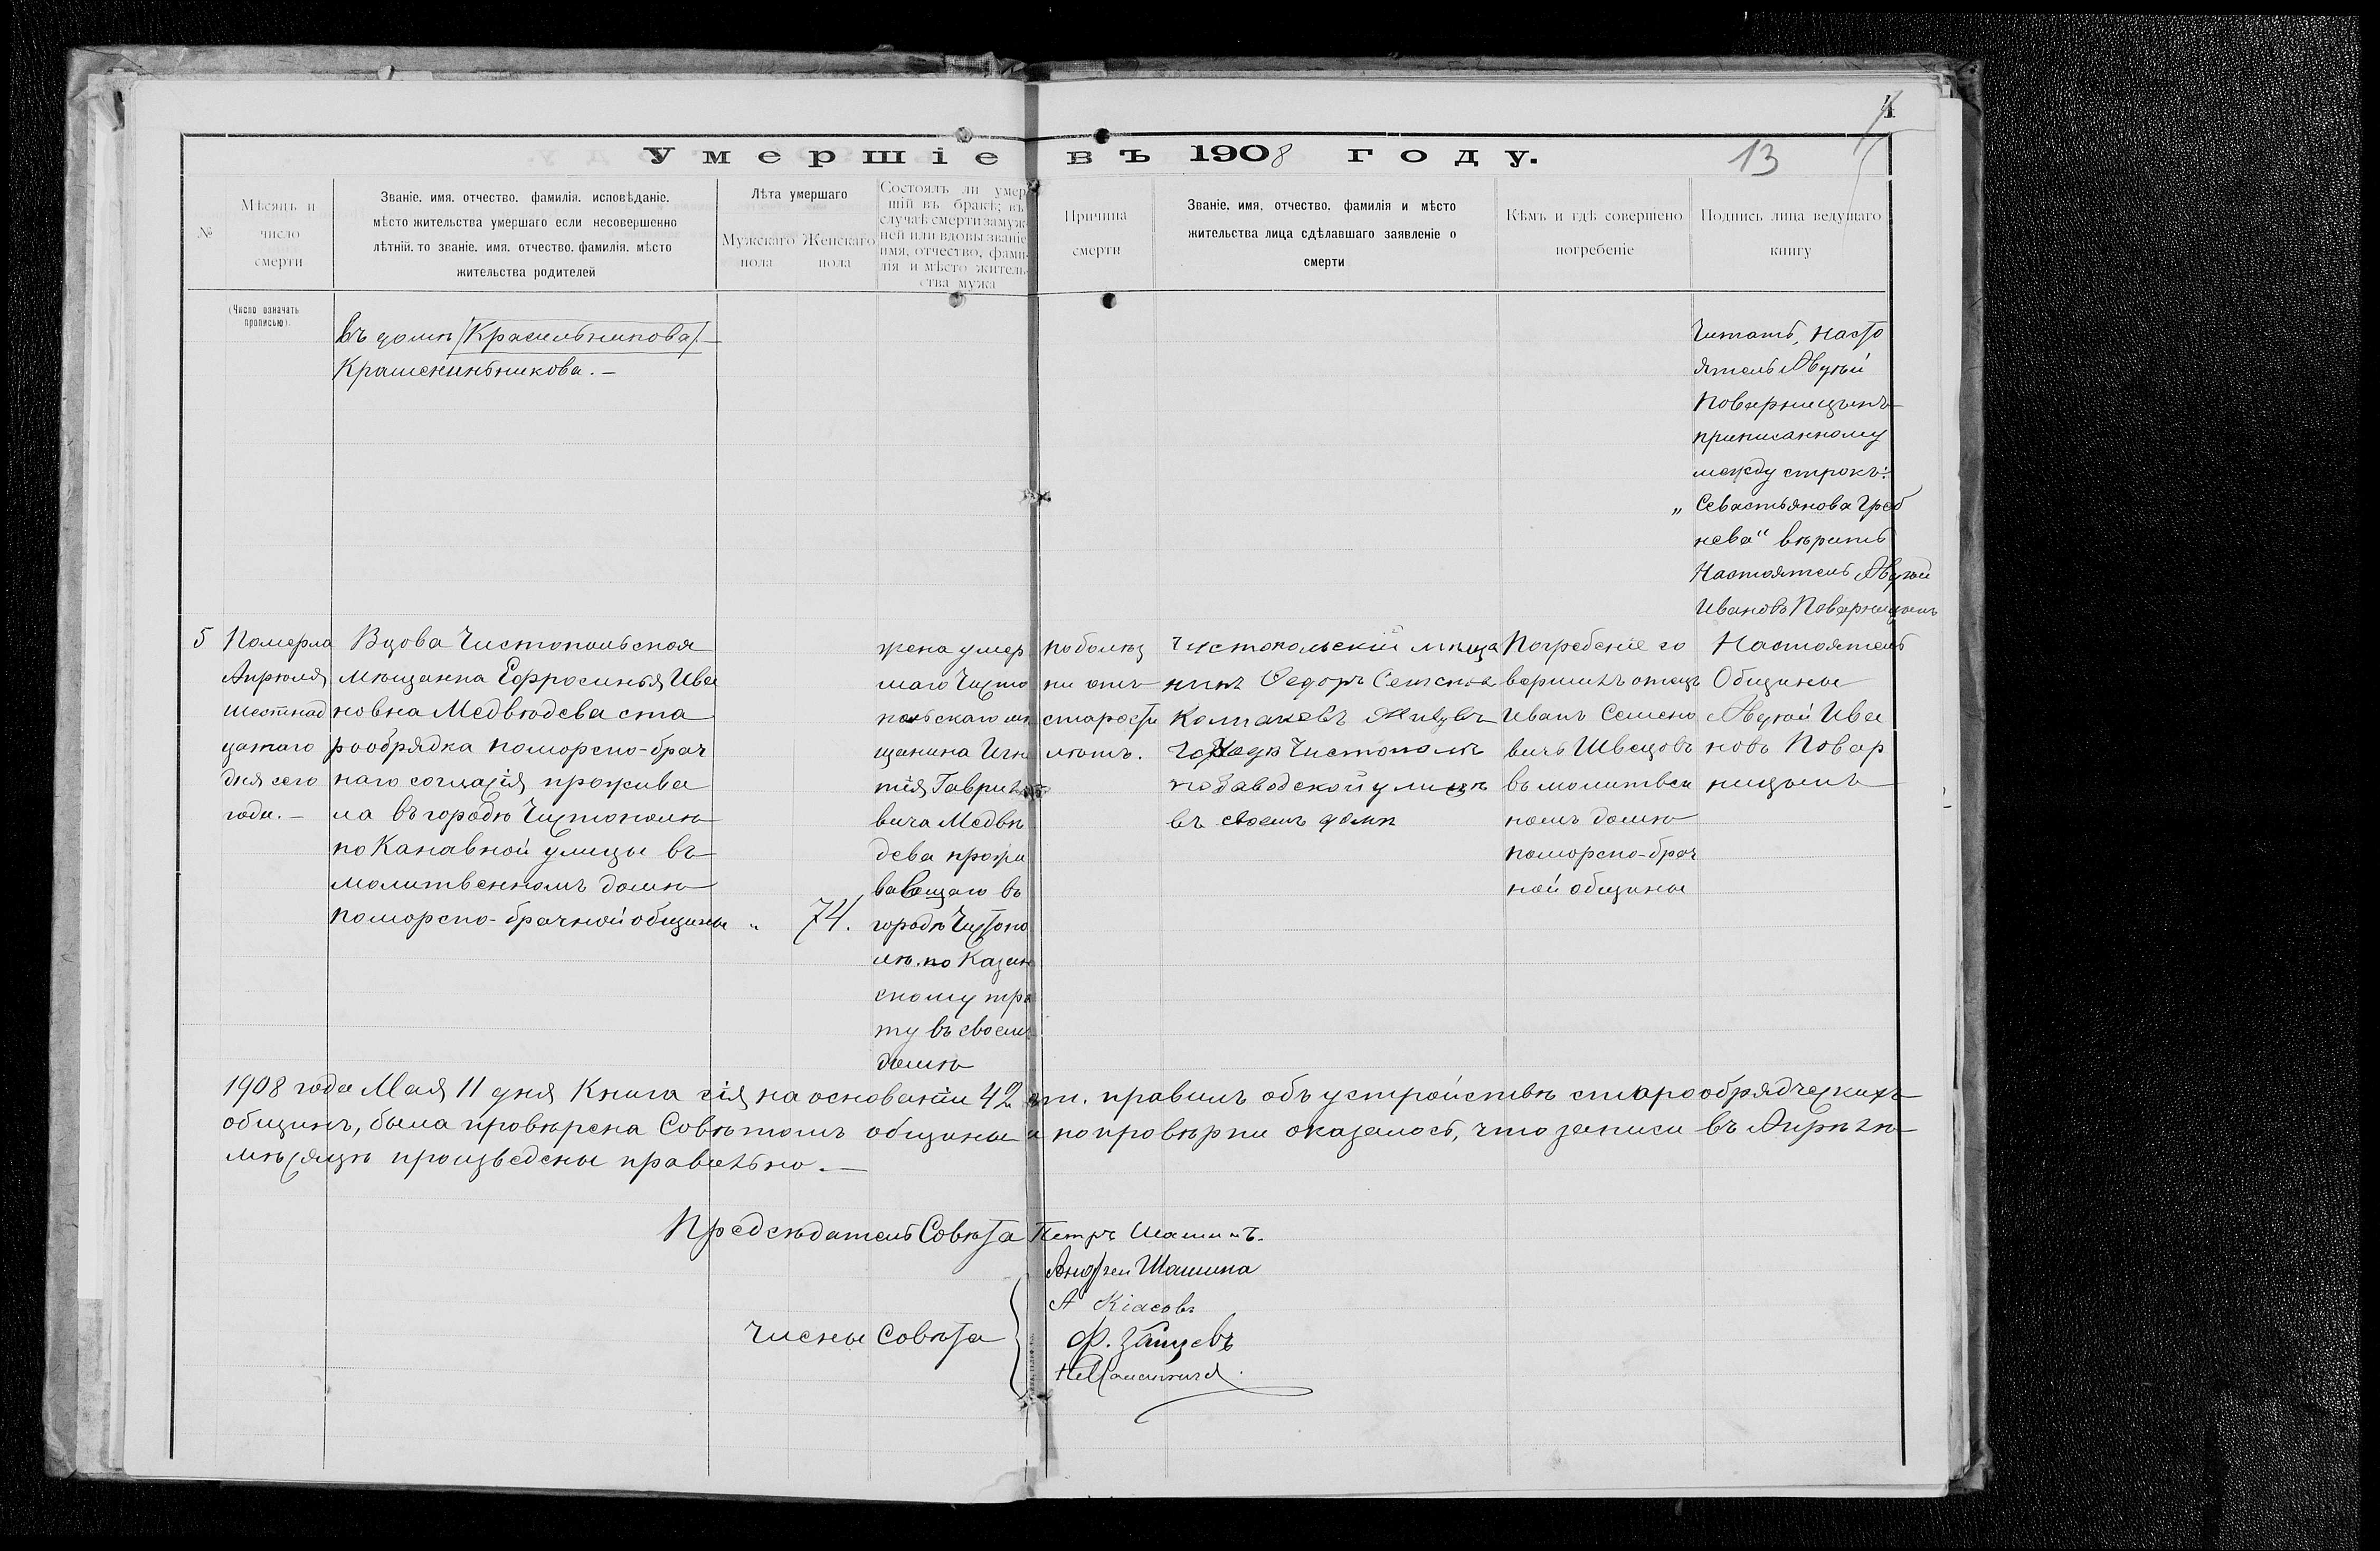 4
Умершіе въ 1908 году.
13
№
Мѣсяцъ и
число
смерти
Званіе. имя. отчество. фамилія. исповѣданіе.
мѣсто жительства умершаго если несовершенно
лѣтній. то званіе. имя. отчество. фамилія. мѣсто
жительства родителей
Лѣта умершаго
Мужскаго
пола
Женскаго
пола
Состоялъ ли умер
шій въ бракѣ; въ
случаѣ смерти замуж
ней или вдовы званіе
имя, отчество, фами
лія и мѣсто житель
ства мужа
Причина
смерти
Званіе. имя, отчество. фамилія и мѣсто
жительства лица сдѣлавшаго заявленіе о
смерти
Кѣмъ и гдѣ совершено
погребеніе
Подпись лица ведущаго
книгу
(Число означать
прописью).
въ домѣ /Красильникова/
Крашенинникова. –
Читать, насто
ятель Авдѣй
Поварницынъ
приписанному
между строкъ:
„Севастьянова Греб
нева" вѣрить
Настоятель Авдѣй
Ивановъ Поварницынъ
5
Померла
Апрѣля
шестнад
цатаго
дня сего
года. –
Вдова Чистопольская
мѣщанка Ефросинья Ива
новна Медвѣдева ста
рообрядка поморско-брач
наго согласія прожива
ла въ городѣ Чистополѣ
по Канавной улицы въ
молитвенномъ домѣ
поморско-брачной общины
„
74.
жена умер
шаго Чисто
польскаго мѣ
щанина Игна
тія Гаврило
вича Медвѣ
дева прожи
вавшаго въ
городѣ Чистопо
лѣ. по Казан
скому тра
ту въ своемъ
домѣ
по болѣз
ни отъ
старости
лѣтъ.
Чистопольскій мѣща
нинъ Федоръ Семенов
Колпаковъ Жив. въ
городѣ Чистополѣ
по Заводской улицѣ
въ своемъ домѣ
Погребеніе со
вершилъ отецъ
Иванъ Семено
вичъ Швецовъ
въ молитвен
номъ домѣ
поморско-брач
ной общины
Настоятель
Общины
Авдѣй Ива
новъ Повар
ницынъ
1908 года Мая 11 дня Книга сія на основаніи 42 ст. правилъ объ устройствѣ старообрядческихъ
общинъ, была провѣрена Совѣтомъ общины и по провѣрки оказалось, что записи въ Апрѣлѣ
мѣсяцѣ произведены правильно. –
Предсѣдатель Совѣта Петръ Шашинъ.
Андрей Шашина
А Кіасовъ
Члены Совѣта
Ф. Зайцевъ